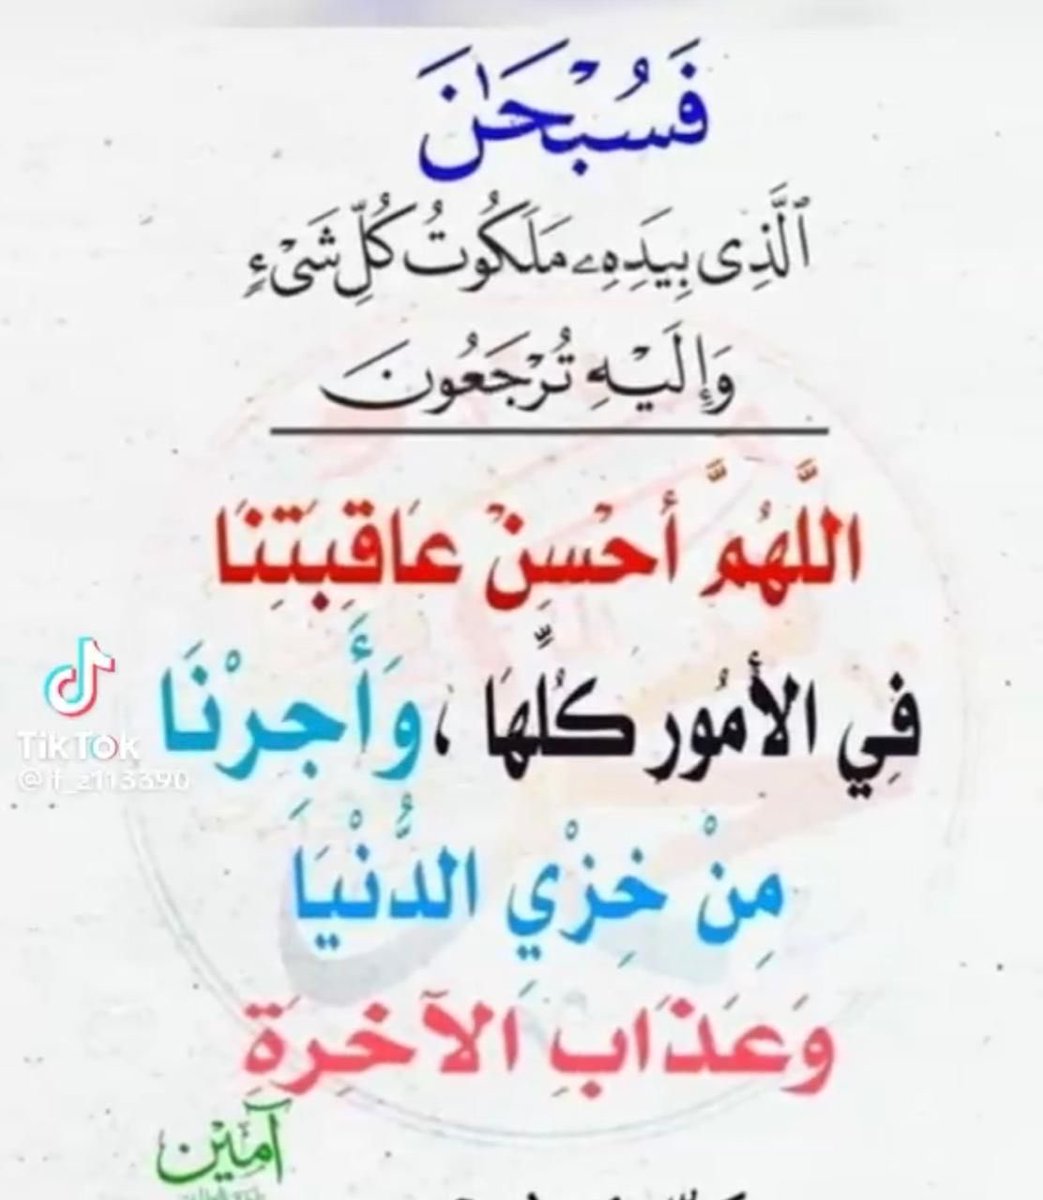 فَسُبْحَٰنَ
ٱلَّذِى بِيَدِهِۦ مَلَكُوتُ كُلِّ شَىْءٍ
وَإِلَيْهِ تُرْجَعُونَ
اللَّهُمَّ أحْسِنْ عَاقِبَتِنَا
فِي الأمُور كُلِّهَا ، وَأَجِرْنَا
مِنْ خِزْيِ الدُّنْيَا
وَعَذَابِ الآخِرَةِ
آمين
TikTok